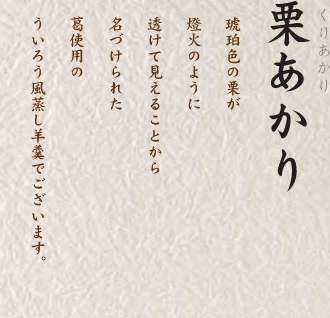 くりあかり
栗あかり
琥珀色の栗が
燈火のように
透けて見えることから
名づけられた
葛使用の
ういろう風蒸し羊羹でございます。